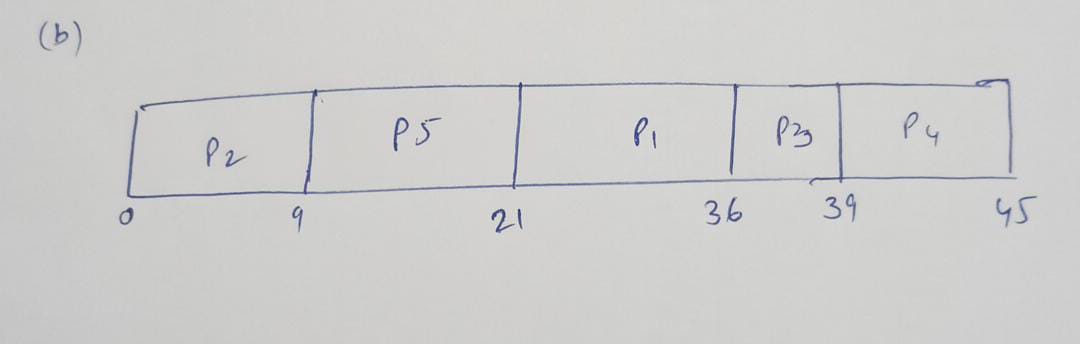 (b)
P2 P5 P1 P3 P4
0 9 21 36 39 45